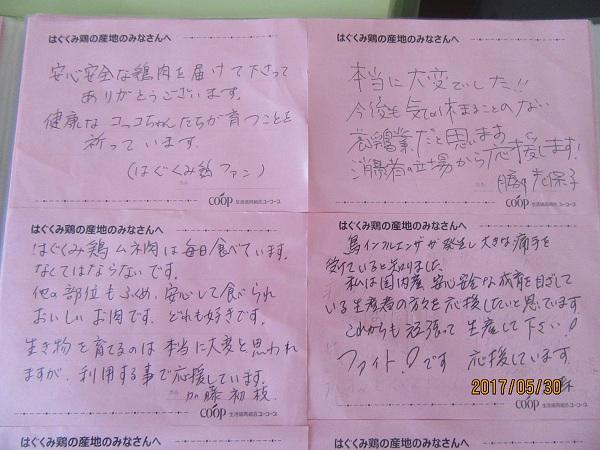 はぐくみ鶏の産地のみなさんへ
安心安全な鶏肉を届けて下さって
ありがとうございます。
健康なコッコちゃんたちが育つことを
祈っています。
(はぐくみ鶏ファン)
COOP 生活協同組合ユーコープ
はぐくみ鶏の産地のみなさんへ
本当に大変でした!!
今後も気の休まることのない
養鶏業だと思います。
消費者の立場から応援します!
COOP 生活協同組合ユーコープ
はぐくみ鶏の産地のみなさんへ
はぐくみ鶏 ムネ肉は毎日食べています。
なくてはならないです。
他の部位もふくめ、安心して食べられ
おいしいお肉です。どれも好きです。
生き物を育てるのは本当に大変と思われ
ますが、利用する事で応援しています。
加藤初枝
COOP 生活協同組合ユーコープ
はぐくみ鶏の産地のみなさんへ
鳥インフルエンザが発生し大きな痛手を
受けていると知りました。
私は国内産、安心安全な成育を目ざして
いる生産者の方々を応援したいと思っています
これからも頑張って生産して下さい!
ファイト!です 応援しています。
2017/05/30
COOP 生活協同組合ユーコープ
はぐくみ鶏の産地のみなさんへ
はぐくみ鶏の産地のみなさんへ